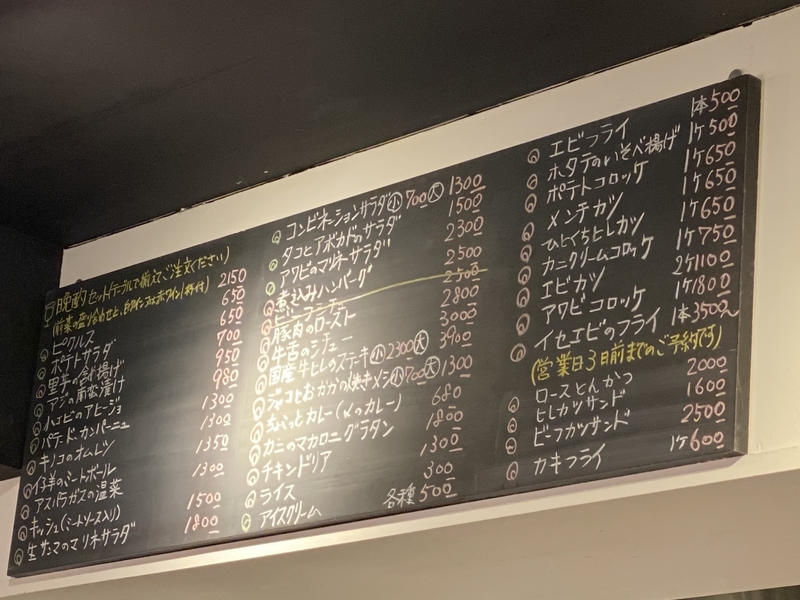 晩酌セット(テーブルで揃えてご注文ください) 2150
(前菜の盛り合わせと、白ワイン又は赤ワイン1杯付)
ピクルス 650
ポテトサラダ 650
里芋の唐揚げ 700
アジの南蛮漬け 950
小エビのアヒージョ 980
パテ・ド・カンパーニュ 1300
キノコのオムレツ 1300
仔羊のミートボール 1350
アスパラガスの温菜 1300
キッシュ(ミートソース入り) 1500
生サーモンのマリネサラダ 1800
コンビネーションサラダ小700大1300
タコとアボカドのサラダ 1500
アワビのマリネサラダ 2300
煮込みハンバーグ 2500
ビーフシチュー 2500
豚肉のロースト 2800
牛舌のシチュー 3000
国産牛ヒレのステーキ小2300大3900
ジャコとおかかの焼きメシ小700大1300
カレー(〆のカレー) 680
カニのマカロニグラタン 1800
チキンドリア 1300
ライス 300
アイスクリーム 各種500
エビフライ 1本500
ホタテのいそべ揚げ 1ケ500
ポテトコロッケ 1ケ650
メンチカツ 1ケ650
ひとくちヒレカツ 1ケ650
カニクリームコロッケ 1ケ750
エビカツ 2ケ1100
アワビコロッケ 1ケ1800
イセエビのフライ 1本3500~
(営業日3日前までのご予約です)
ロースとんかつ 2000
ヒレカツサンド 1600
ビーフカツサンド 2500
カキフライ 1ケ600